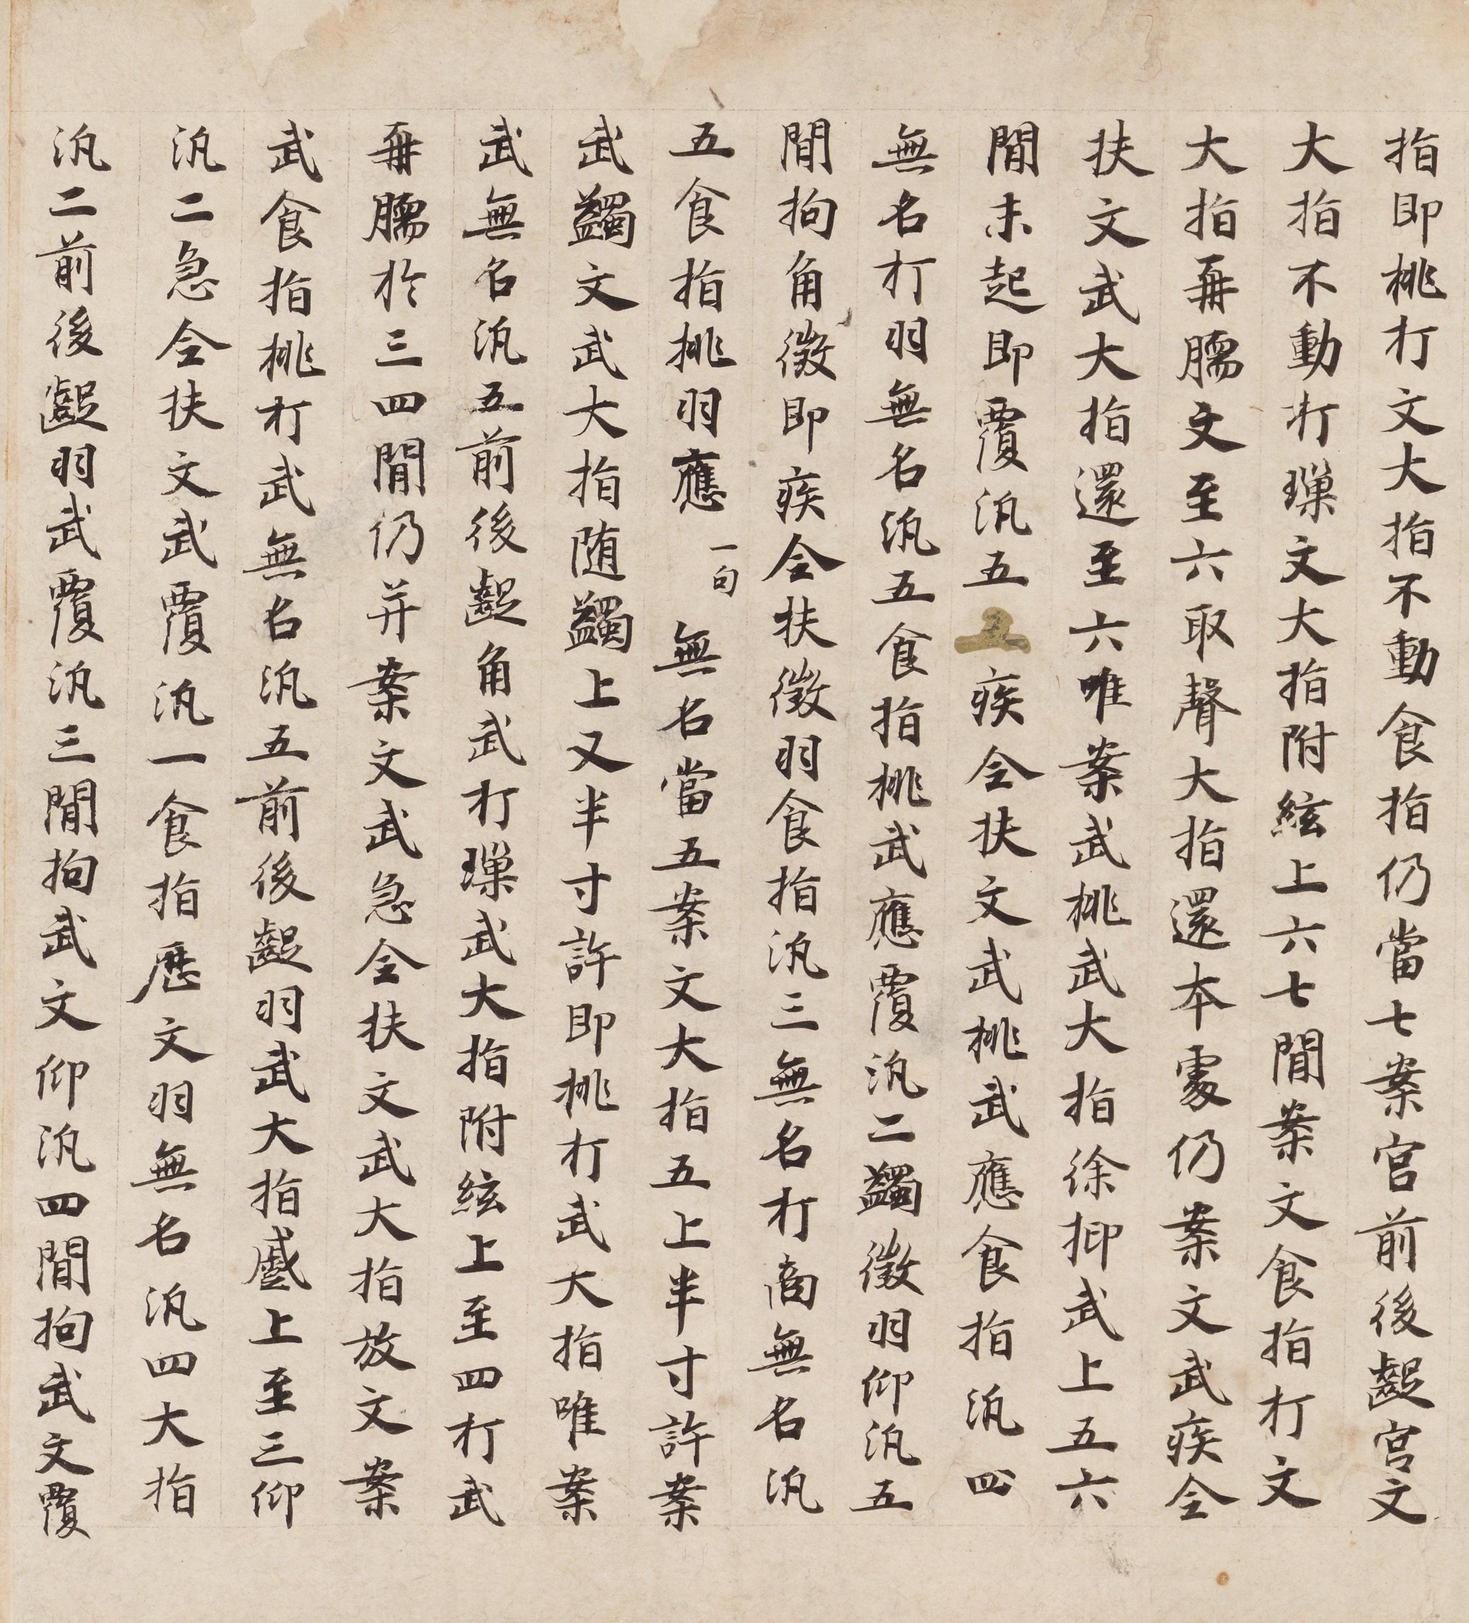 指即挑打文大指不動食指仍當七案宮前後齪宮文
大指不動打㻫文大指附絃上六七閒案文食指打文
大指再臑文至六取聲大指還本處仍案文武疾全
扶文武大指還至六唯案武挑武大指徐抑武上五六
閒未起即覆汎五五疾全扶文武挑武應食指汎四
無名打羽無名汎五食指挑武應覆汎二蠲徵羽仰汎五
閒拘角徵即疾全扶徵羽食指汎三無名打商無名汎
五食指挑羽應一句無名當五案文大指五上半寸許案
武蠲文武大指随蠲上又半寸許即挑打武大指唯案
武無名汎五前後齪角武打㻫武大指附絃上至四打武
再臑扵三四閒仍并案文武急全扶文武大指放文案
武食指挑打武無名汎五前後齪羽武大指蹙上至三仰
汎二急全扶文武覆汎一食指歷文羽無名汎四大指
汎二前後齪羽武覆汎三閒拘武文仰汎四閒拘武文覆